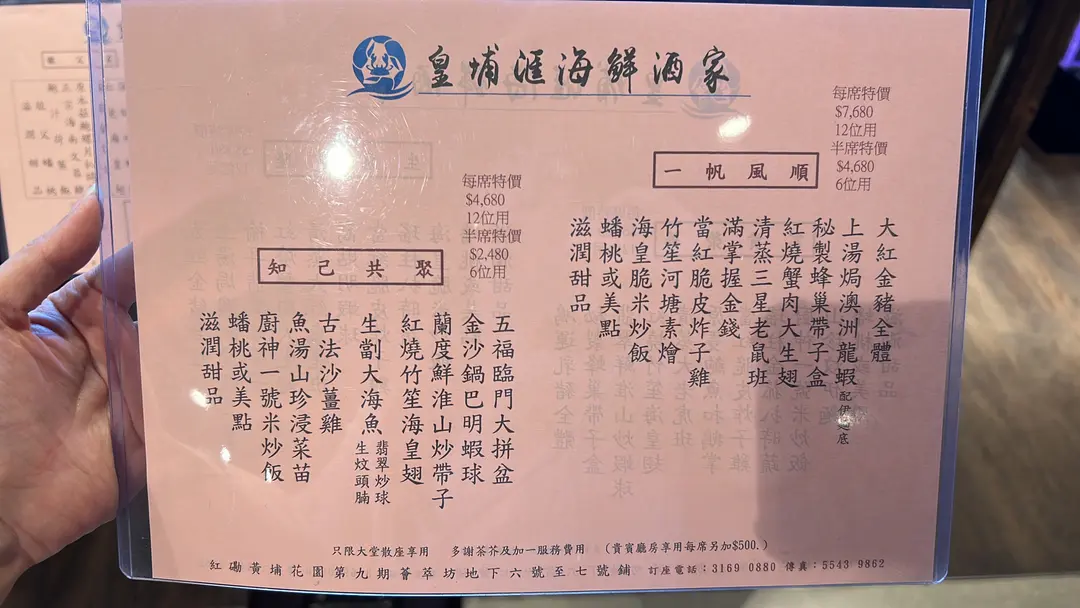 皇埔滙海鮮酒家
每席特價
$7,680
12位用
半席特價
$4,680
6位用
一帆風順
大紅金豬全體
上湯焗澳洲龍蝦 配伊麵底
秘製蜂巢帶子盒
紅燒蟹肉大生翅
清蒸三星老鼠班
滿掌握金錢
當紅脆皮炸子雞
竹笙河塘素燴
海皇脆米炒飯
蟠桃或美點
滋潤甜品
每席特價
$4,680
12位用
半席特價
$2,480
6位用
知己共聚
五福臨門大拼盆
金沙鍋巴明蝦球
蘭度鮮淮山炒帶子
紅燒竹笙海皇翅
生劏大海魚 翡翠炒球
生炆頭腩
古法沙薑雞
魚湯山珍浸菜苗
廚神一號米炒飯
蟠桃或美點
滋潤甜品
只限大堂散座享用 多謝茶芥及加一服務費用 (貴賓廳房享用每席另加$500.)
紅磡黃埔花園第九期薈萃坊地下六號至七號鋪 訂座電話：3169 0880 傳真：5543 9862